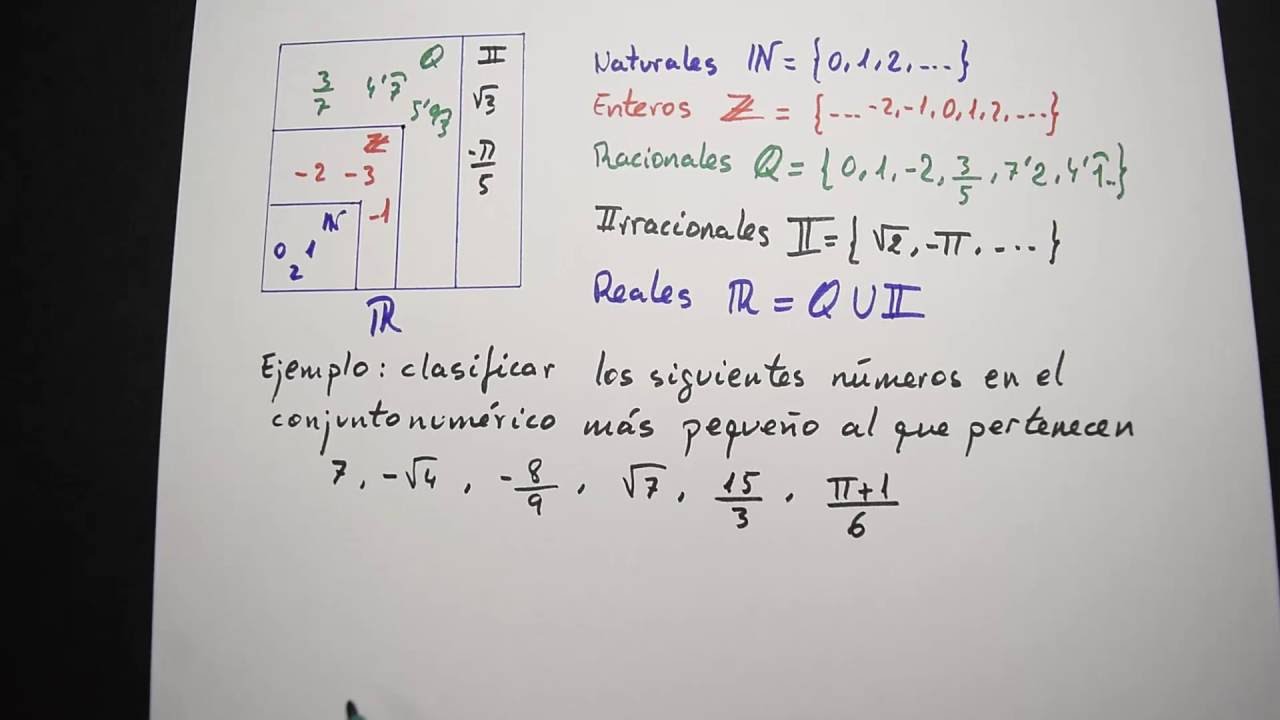 Q II
3/7 4'7̂ 5'93 √3
Z -π/5
-2 -3
-1
N
0 1
2
R
Naturales N = {0, 1, 2, ....}
Enteros Z = {.... -2, -1, 0, 1, 2, ....}
Racionales Q = {0, 1, -2, 3/5, 7'2, 4'1̂..}
IIrracionales II = {√2, -π, ....}
Reales R = Q U II
Ejemplo: clasificar los siguientes números en el
conjunto numérico más pequeño al que pertenecen
7, -√4, -8/9, √7, 15/3, π+1/6